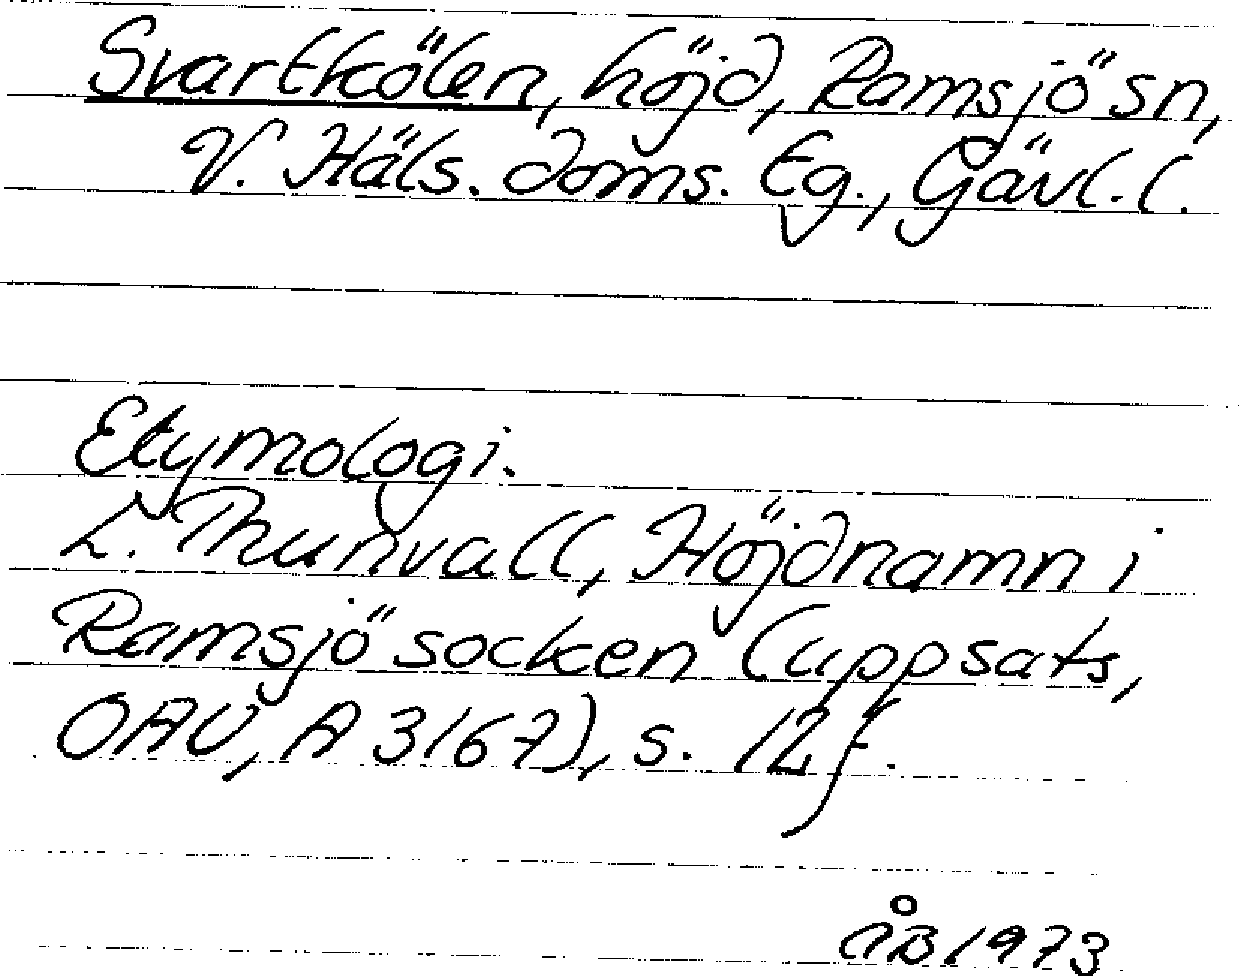 Svartkölen, höjd, Ramsjö sn,
V. Häls. doms. Eg., Gävl. l.
Etymologi.
L. Thunvall, Höjdnamn i
Ramsjö socken (uppsats,
OAU, A 3167), s. 12 f.
ÅB 1973